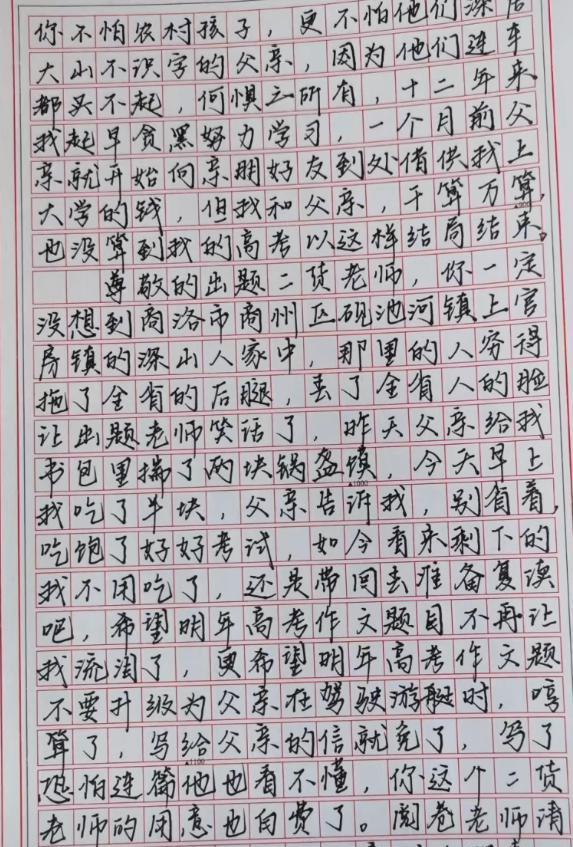 你不怕农村孩子，更不怕他们深居
大山不识字的父亲，因为他们连车
都买不起，何惧之所有，十二年来
我起早贪黑努力学习，一个月前父
亲就开始向亲朋好友到处借供我上
大学的钱，但我和父亲，千算万算，
也没算到我的高考以这样结局结束。
尊敬的出题二货老师，你一定
没想到商洛市商州区砚池河镇上官
房镇的深山人家中，那里的人穷得
拖了全省的后腿，丢了全省人的脸
让出题老师笑话了，昨天父亲给我
书包里揣了两块锅盔馍，今天早上
▲1000
我吃了半块，父亲告诉我，别省着，
吃饱了好好考试，如今看来剩下的
我不用吃了，还是带回去准备复读
吧，希望明年高考作文题目不再让
我流泪了，更希望明年高考作文题
不要升级为父亲在驾驶游艇时，哼
算了，写给父亲的信就免了，写了
▲1100
恐怕连篇他也看不懂，你这个二货
老师的用意也白费了。阅卷老师请